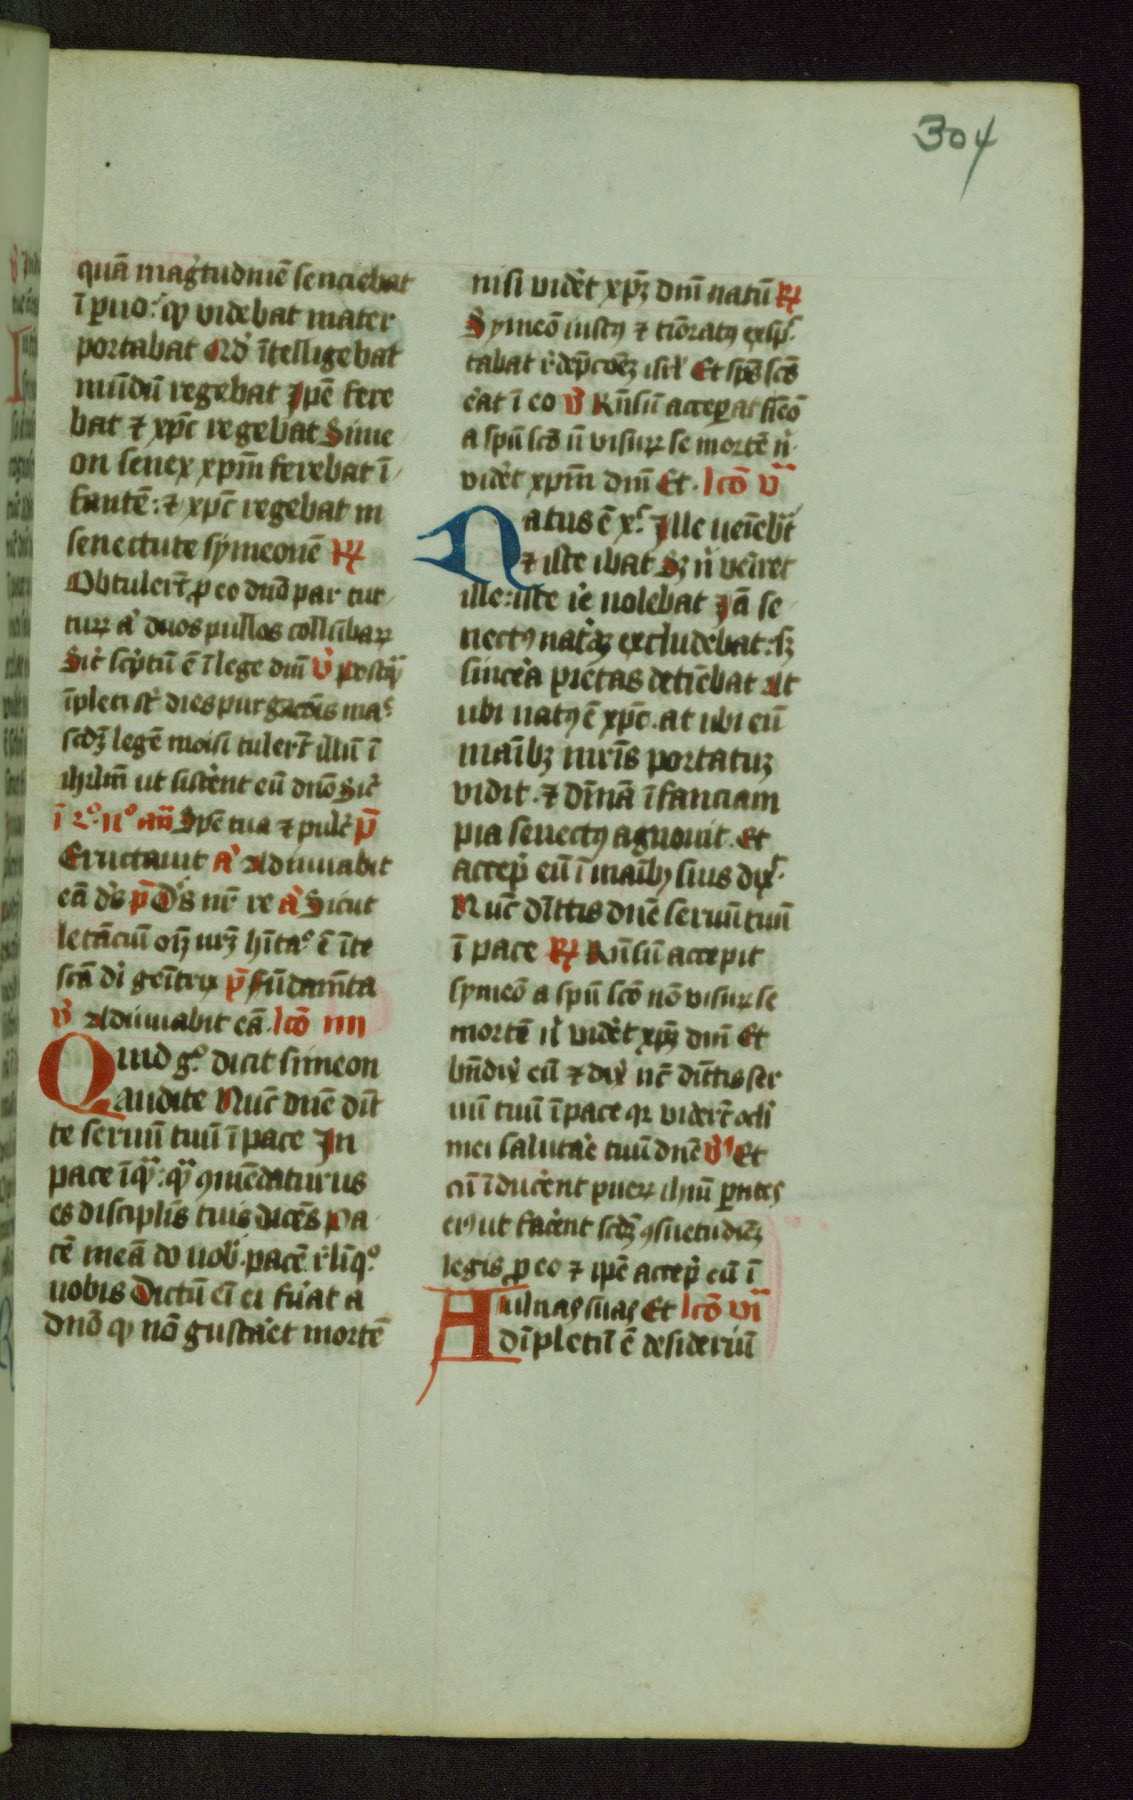 304
quā mag̓tudinē senciebat
ī puo: qͥ videbat mater
portabat Nō ītelligebat
mūdū regebat Ip̄e fere
bat ⁊ xp̄c regebat Sime
on senex xpm̄ ferebat ī
fantē: ⁊ xp̄c regebat in
senectute symeonē R
Obtuler̄t ꝓ eo dn̄o par tur
turꝝ a̓ duos pullos collūbaꝝ
Sic̓ scp̓tū ē ī lege dnī v̓ postqͣ
īpleti st̓ dies purgacōis maͤ
scdꝫ legē moisi tuler̄t illū ī
ihrlm̄ ut sistēnt eū dn̄o Sic̓
ī 2º nº an̄ Spē tua ⁊ pulc̓ p̄
Eructauit a̓ Adiuuabit
eā d̓s p̄ D̓s nr̄ re a̓ Sicut
letāciū oīꝫ nrꝫ hīta ē ī te
scā di genitrix p̄ fūdamīta
v̓ Adiuuabit eā. lcō iiii
Quid gº dicit simeon
audite Nūc dnē dīt
te seruū tuū ī pace In
pace īqͣ: qͣ ꝯmēdaturus
es disciplīs tuis dicēs Pa
cē meā do uob̓. pacē r̓līqº
uobis Dictū eī ei fuāt a
dn̄o ꝙ nō gustaēt mortē
nisi uidēt xpꝫ dnī natū R
Symeō iustꝰ ⁊ timoratꝰ exsp̓
tabat r̓dēpcōeꝫ isrl̓ Et spūs scūs
ēat ī eo v̓ Rn̄sū acceperat simeō
a spū scō nō visuꝝ se mortē n̓
vidēt xpm̄ dnī Et. lcō v̓ͣ
Natus ē x̓c Ille ueīebt̄
⁊ iste ibat Sꝫ n̓ ueīret
ille: iste ie̓ nolebat Iā se
nectꝰ nat̓aꝫ excludebat: sꝫ
sincēa pietas detīebat At
ubi natꝰ ē xp̄c. at ubi eū
maībꝫ mrīs portatuꝫ
vidit. ⁊ dīnā īfanciam
pia senectꝰ agnouit. Et
accep̓ eū ī maībꝫ suis dix̓
Nūc dīttis dnē seruū tuū
ī pace R Rn̄sū accepit
symeō a spū scō nō visuꝝ se
mortē n̓ vidēt xpꝫ dnī Et
bn̄dix̓ eū ⁊ dix̓ nc̄ dīttis ser
uū tuū ī pace qꝛ viderūt ocli
mei salutāe tuū dnē v̓ Et
cū īducēnt pueꝝ ihm̄ pentes
eiꝰ ut facēnt scdꝫ ꝯsuetudīeꝫ
legis ꝓ eo ⁊ ip̄e accep̓ eū ī
ulnas suas Et lcō vi
Adīpletū ē desideriū